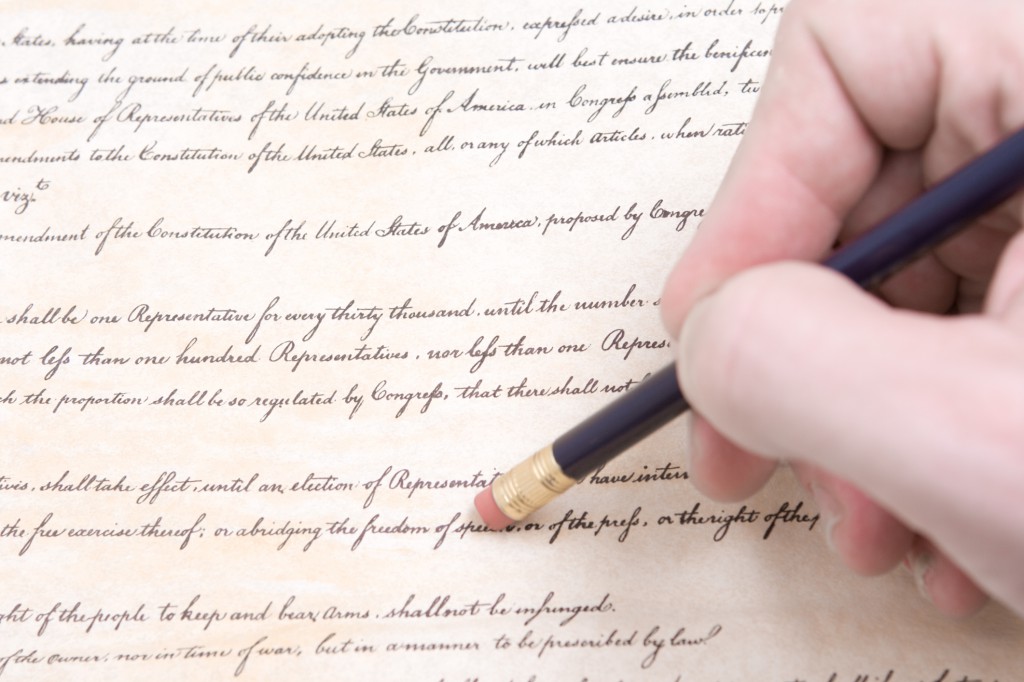 States, having at the time of their adopting the Constitution, expressed a desire, in order to
extending the ground of public confidence in the Government, will best ensure the
House of Representatives of the United States of America, in Congress assembled,
to the Constitution of the United States, all, or any of which Articles, when
viz.t
of the Constitution of the United States of America, proposed by
shall be one Representative for every thirty thousand, until the number
not less than one hundred Representatives, nor less than one
the proportion shall be so regulated by Congress, that there shall not
shall take effect, until an election of have
the free exercise thereof; or abridging the freedom of or of the press, or the right of the
of the people to keep and bear Arms, shall not be infringed.
of the Owner, nor in time of war, but in a manner to be prescribed by law.